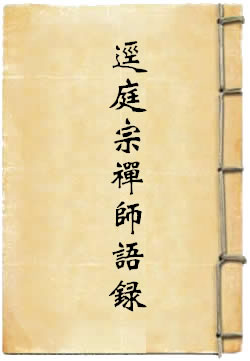 逕庭宗禪師語錄